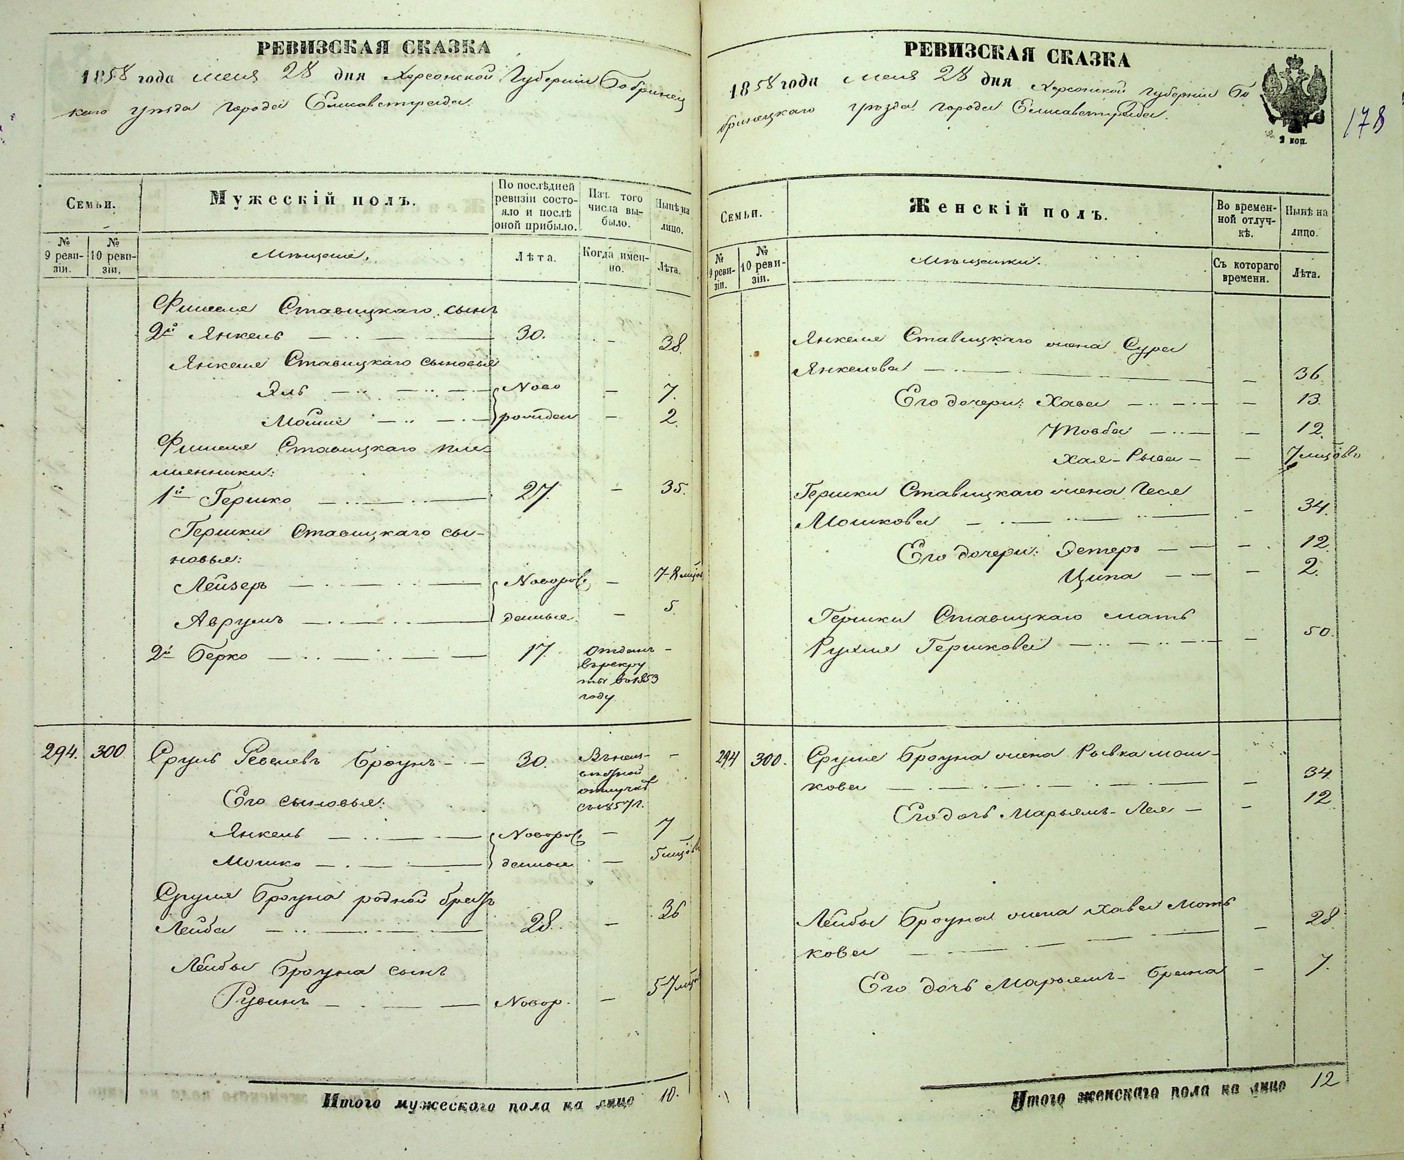 РЕВИЗСКАЯ СКАЗКА
1858 года мая 28 дня Херсонской Губернии Бобринец
каго уезда города Елисаветграда.
Семьи.
Мужескій полъ.
По послѣдней ревизіи состояло и послѣ оной прибыло.
Изъ того числа выбыло.
Нынѣ на лицо.
№ 9 ревизіи.
№ 10 ревизіи.
Мѣщане,
Лѣта.
Когда именно.
Лѣта.
Фишеля Ставицкаго сынъ
2й Янкель 30. - 38.
Янкеля Ставицкаго сыновья
Эль Ново - 7.
Мошко рожден - 2.
Фишеля Ставицкаго пле-
мянники:
1й Гершко 27 - 35.
Гершки Ставицкаго сы-
новья:
Лейзеръ Новорож -
Аврумъ денные. - 5
2й Берко 17 отданъ -
въ рекру
ты въ 1853
году
294. 300 Сруль Яевелевъ Броунъ 30. -
отлучкѣ
съ 1857 г.
Его сыновья:
Янкель Новорож - 7
Мошко денные -
Сруля Броуна родной братъ
Лейба 28. - 36
Лейбы Броуна сынъ
Рувинъ Новор. -
Итого мужескаго пола на лицо 10.
РЕВИЗСКАЯ СКАЗКА
1858 года мая 28 дня Херсонской Губерніи Бо
бринецкаго уезда города Елисаветграда.
2 коп.
178
Семьи.
Женскій полъ.
Во временной отлучкѣ.
Нынѣ на лицо.
№ 9 ревизіи.
№ 10 ревизіи.
Мѣщанки.
Съ котораго времени.
Лѣта.
Янкеля Ставицкаго жена Сура
Янкелева - 36
Его дочери: Хава - 13
Товба - 12.
Хая-Рыва - 7
Гершки Ставицкаго жена Песя
Мошкова - 34
Его дочери: Эстеръ - 12
Ципа - 2.
Гершки Ставицкаго мать
Рухля Гершкова - 50.
294 300. Сруля Броуна жена Рывка Мош-
кова - 34
Его дочь Марьямъ-Лея - 12
Лейбы Броуна жена Хава Моть
кова - 28
Его дочь Марьямъ-Брана - 7.
Итого женскаго пола на лицо 12